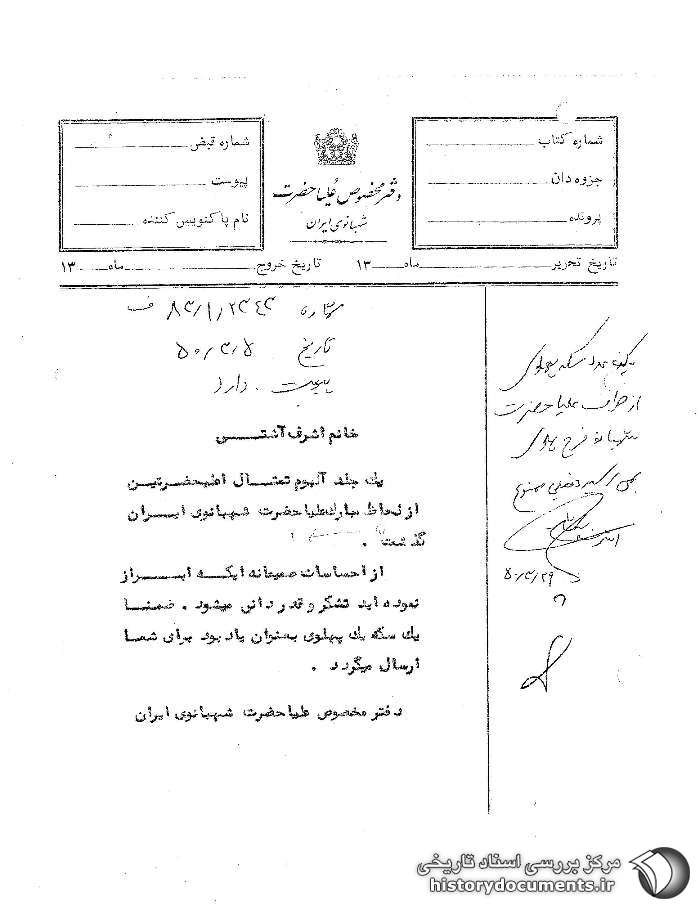 شماره کتاب
جزوه دان
پرونده
دفتر مخصوص علیاحضرت
شهبانوی ایران
شماره قبض
پیوست
نام پاکنویس کننده
تاریخ تحریر ماه ۱۳ تاریخ خروج ماه ۱۳
شماره ۸۳/۱/۲۳۴۳ ف
تاریخ ۵۰/۳/۵
پیوست . دارد
خانم اشرف آشتی
یك جلد آلبوم تمثال اعلیحضرتین
از لحاظ مبارك علیاحضرت شهبانوی ایران
گذشت .
از احساسات صمیمانه ایکه ابراز
نموده اید تشکر و قدردانی میشود . ضمنا
یك سکه یك پهلوی بعنوان یادبود برای شما
ارسال میگردد .
دفتر مخصوص علیاحضرت شهبانوی ایران
یکعدد سکه پهلوی
از طرف علیاحضرت
شهبانو فرح پهلوی
۵۰/۳/۲۹
مرکز بررسی اسناد تاریخی
historydocuments.ir